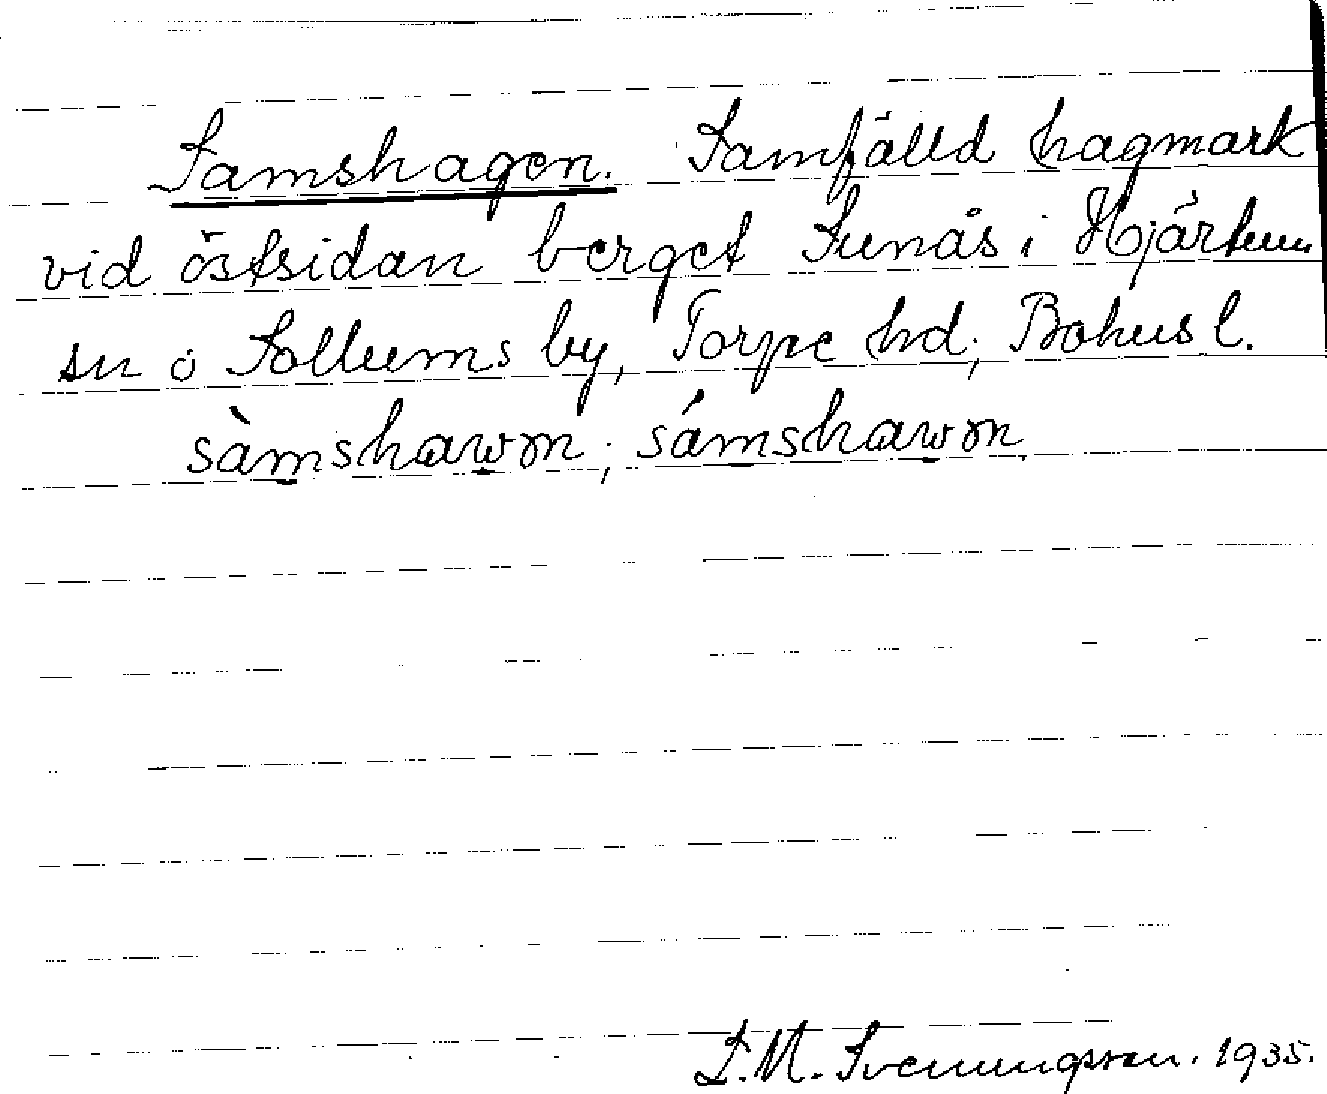 Samshagen. Samfälld hagmark
vid östsidan berget Sunås i Hjärtum
sn o Sollums by, Torpe hd, Bohusl.
sàmshawən; sámshawən
S.M. Svenungsson. 1935.